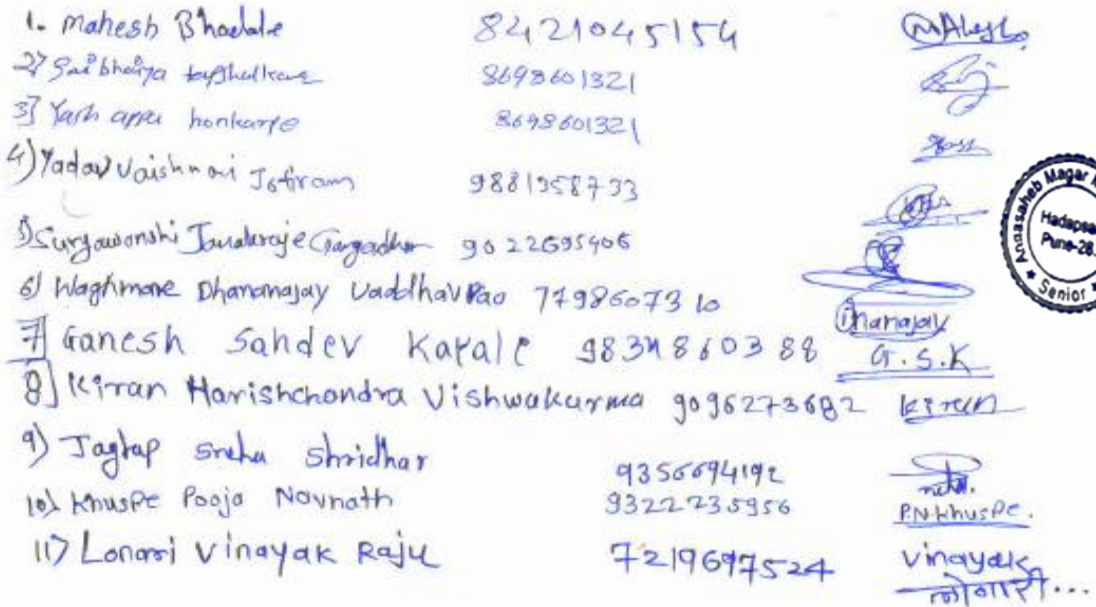 1. Mahesh Bhadale 8421045154 Mahesh
2) Saibhaiya 8698601321
3] Yash appa honkarpe 8698601321 Yash
4) Yadav Vaishnavi Jotiram 9881958733
5) Suryawanshi Janakraje Gangadhar 9022695406
6) Waghmare Dhananajay Uaddhav Rao 7798607310 Dhanajay
7] Ganesh Sahdev Kapale 9834860388 G.S.K
8] Kiran Harishchandra Vishwakarma 9096273682 Kiran
9) Jagtap Sneha Shridhar 9356694192
10) Khuspe Pooja Navnath 9322235956 P.N.Khuspe.
11) Lonari Vinayak Raju 7219697524 Vinayak
लोणारी...
Annasaheb Magar
Hadapsar
Pune-28.
Senior